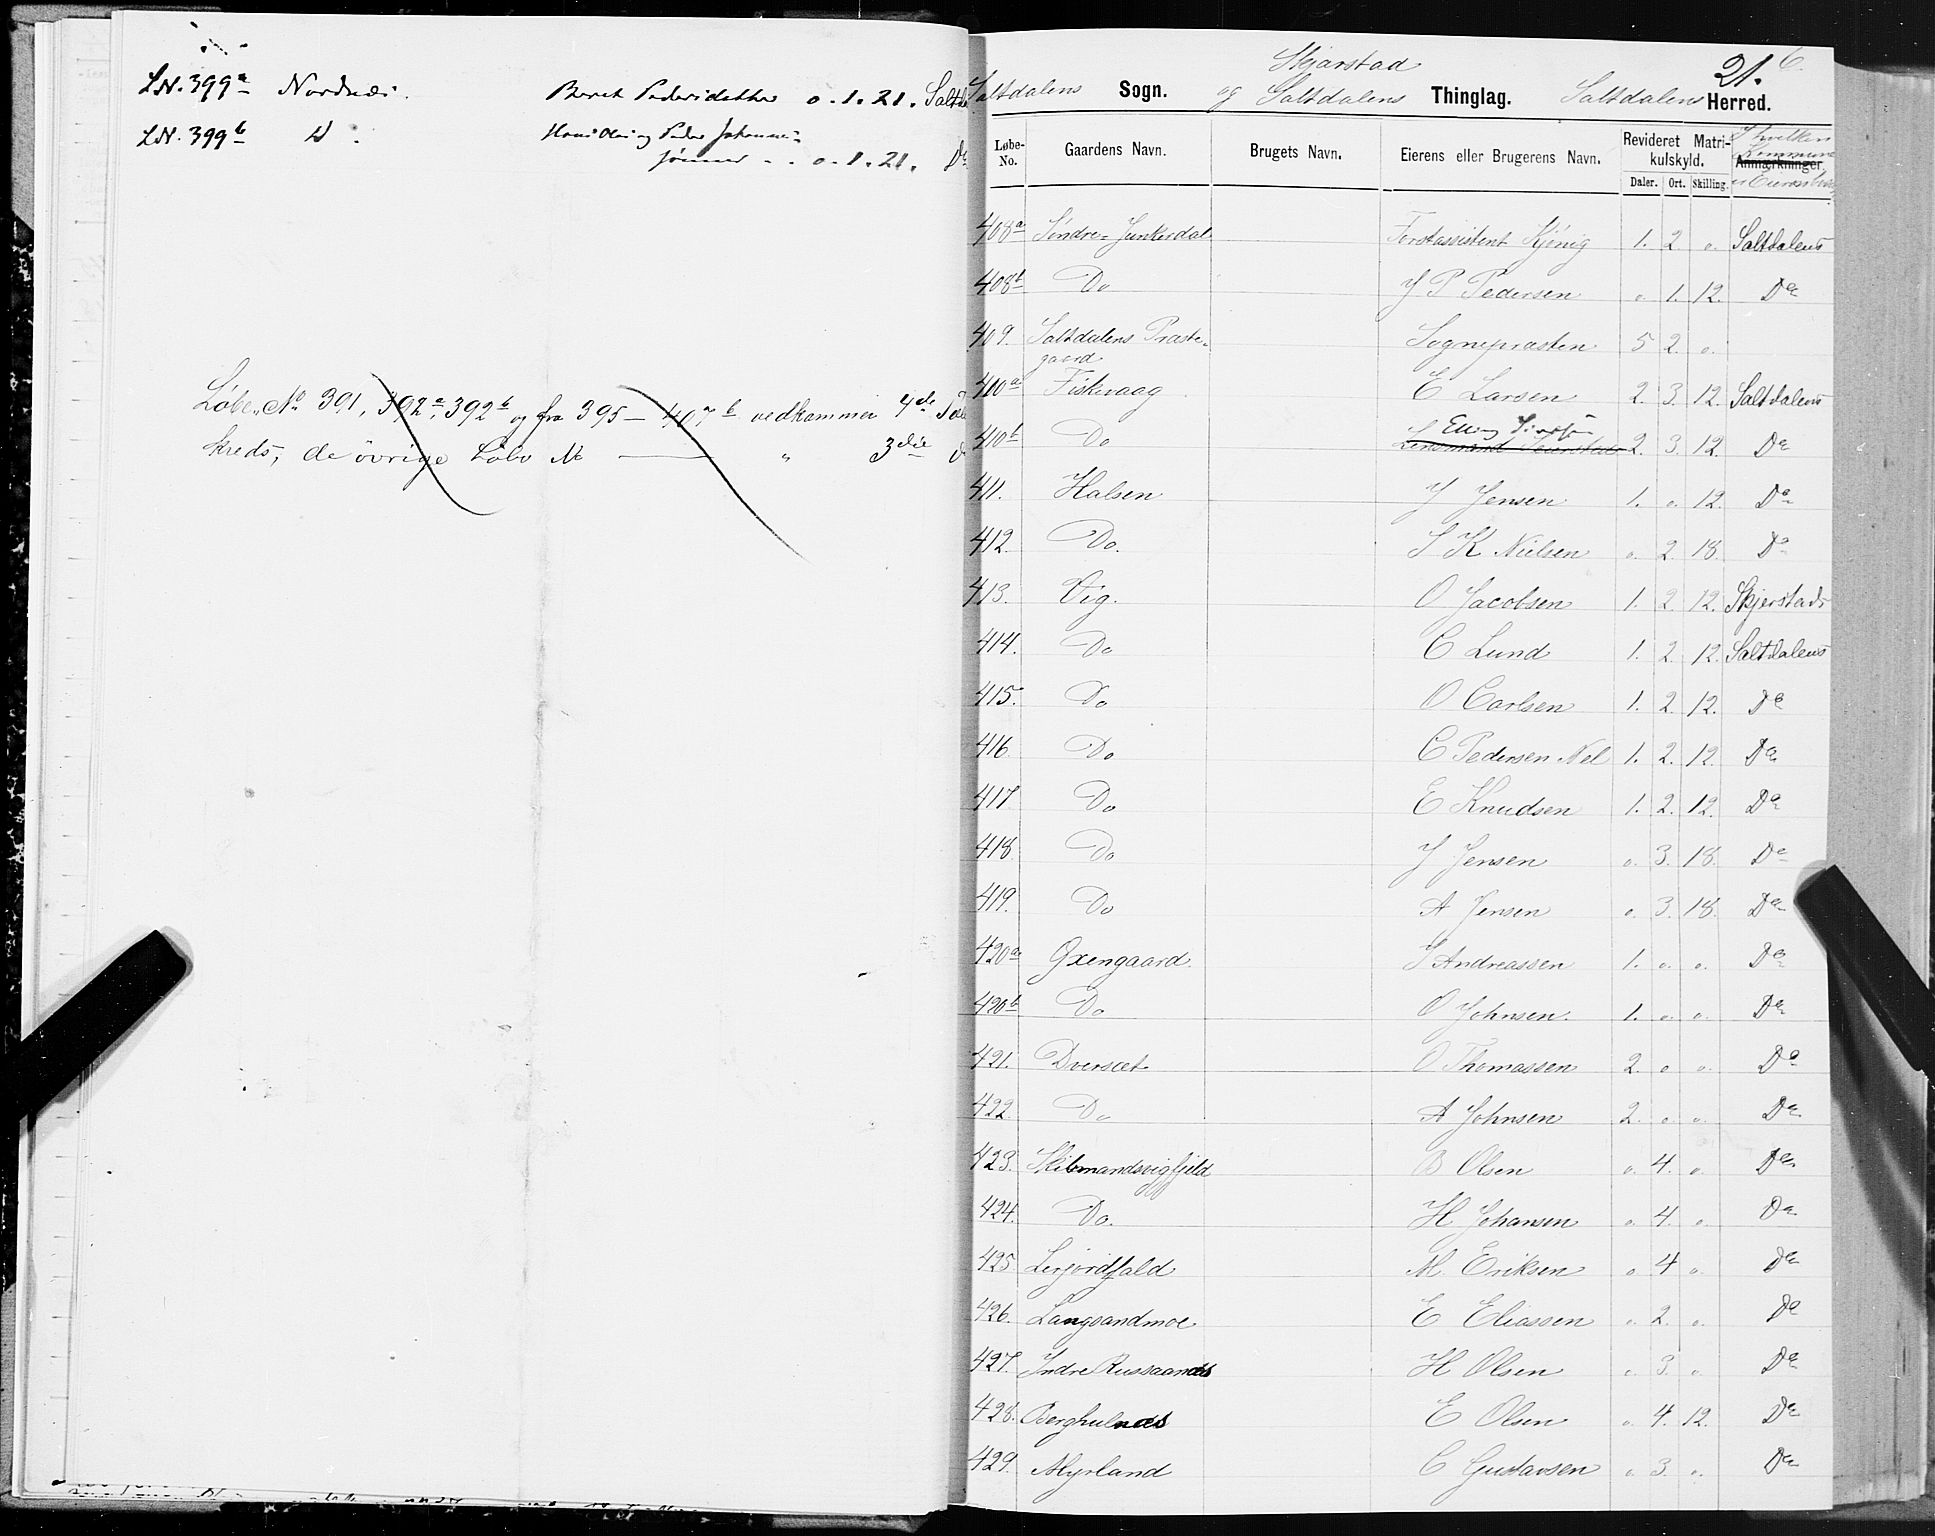 LN. 399a Nordnæs. Beret Pedersdatter o. 1. 21. Saltd
LN. 399b D. Hans Olai og Peder Johannes=
sønner - . o. 1. 21. Do
Løbe No 391, 392a, 392b og fra 395 – 407b vedkommer 4de
kreds, de övrige Løbe No — " 3die
21. 6.
Skjærstad
Saltdalens Sogn. og Saltdalens Thinglag. Saltdalens Herred.
Løbe-No. Gaardens Navn. Brugets Navn. Eierens eller Brugerens Navn. Revideret Matrikulskyld. Daler. Ort. Skilling. Anmærkninger. I hvilken Kommune
408a Søndre=Junkerdal Forstassistent Kjönig 1. 2. o. Saltdalens
408b Do J P Pedersen o. 1. 12. Do
409. Saltdalens Præste=
gaard Sognepræsten 5 2. o.
410a Fiskvaag E Larsen 2. 3. 12. Saltdalens
410b Do Lensmand 2. 3. 12. Do
411. Halsen J Jensen 1. o. 12. Do
412. Do. S K Nielsen o. 2. 18. Do
413. Vig. O Jacobsen 1. 2. 12. Skjerstads
414. Do C Lund 1. 2. 12. Saltdalens
415. Do O Carlsen 1. 2. 12. Do
416. Do C Pedersen Nel 1. 2. 12. Do
417. Do E Knudsen 1. 2. 12. Do
418. Do J Jensen o. 3. 18. Do
419. Do A Jensen o. 3. 18. Do
420a Oxengaard S Andreassen 1. o. o. Do
420b Do O Johnsen. 1. o. o. Do
421. Dverset O Thomassen 2. o o. Do
422. Do A Johnsen 2. o. o. Do
423. Skilomandsvigfjeld B Olsen o. 4. o. Do
424. Do. H Johansen o. 4. o. Do
425. Lerjordfald M. Eriksen o 4 o. Do
426. Langsandmoe E Eliassen o. 2. o. Do
427. Indre Russaanæs H Olsen o. 3. o. Do
428. Berghulnæs E Olsen o. 4. 12. Do
429. Myrland C Gustavsen o. 3. o. Do